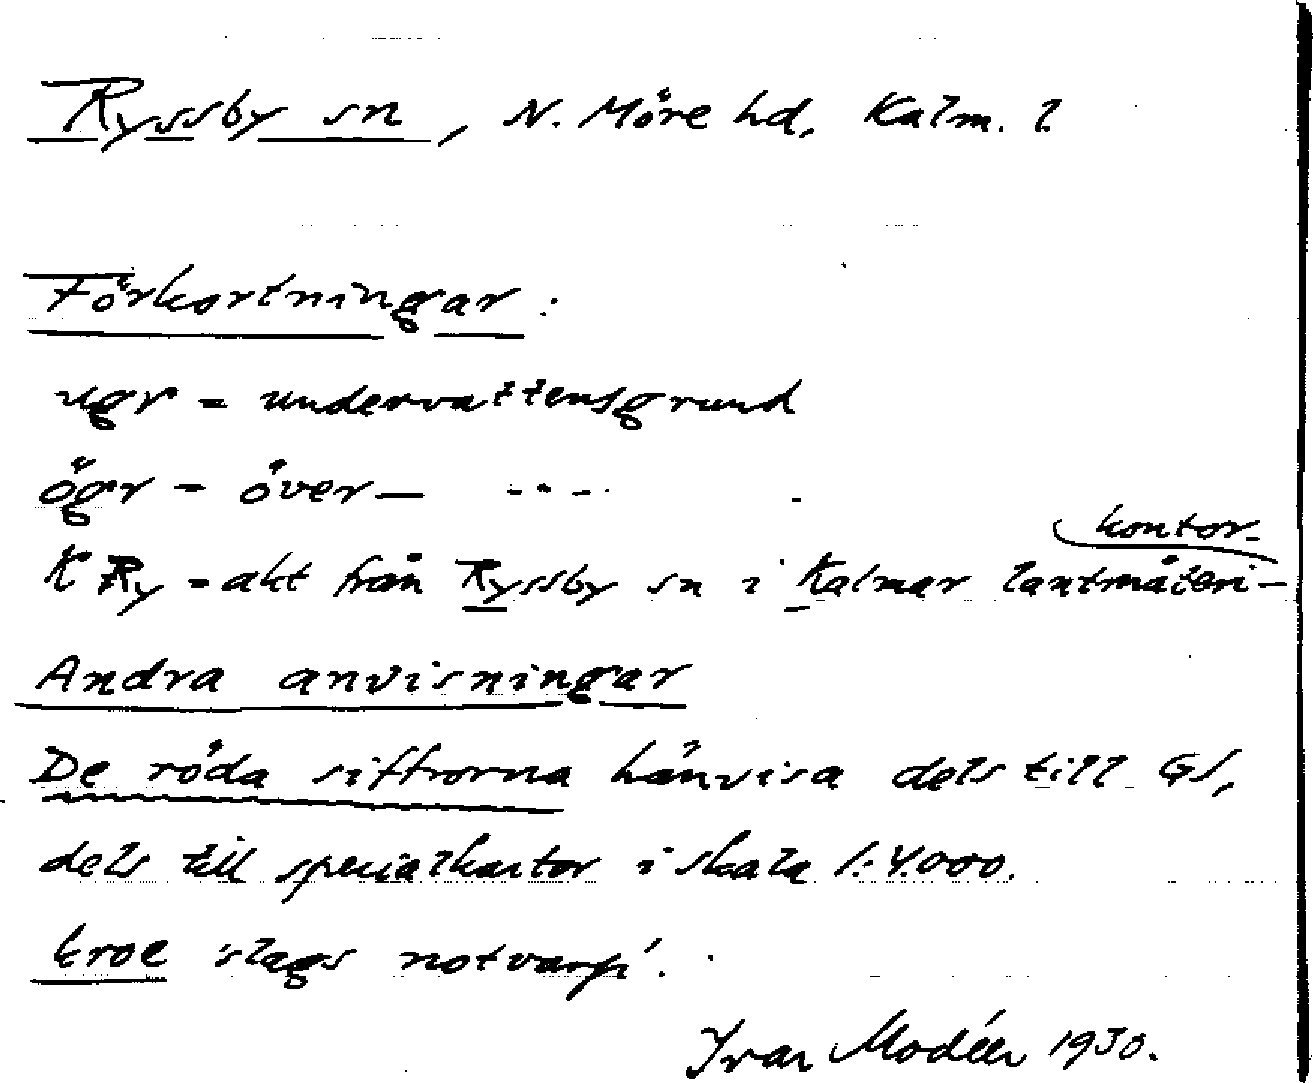 Ryssby sn, N. Möre hd, Kalm. l.
Förkortningar:
ugr = undervattensgrund
ögr = över— -"-
K Ry = akt från Ryssby sn i Kalmar lantmäteri-
kontor.
Andra anvisningar
De röda siffrorna hänvisa dels till GS,
dels till specialkartor i skala 1:4.000.
kroe 'slags notvarp'.
Ivar Modéer 1930.